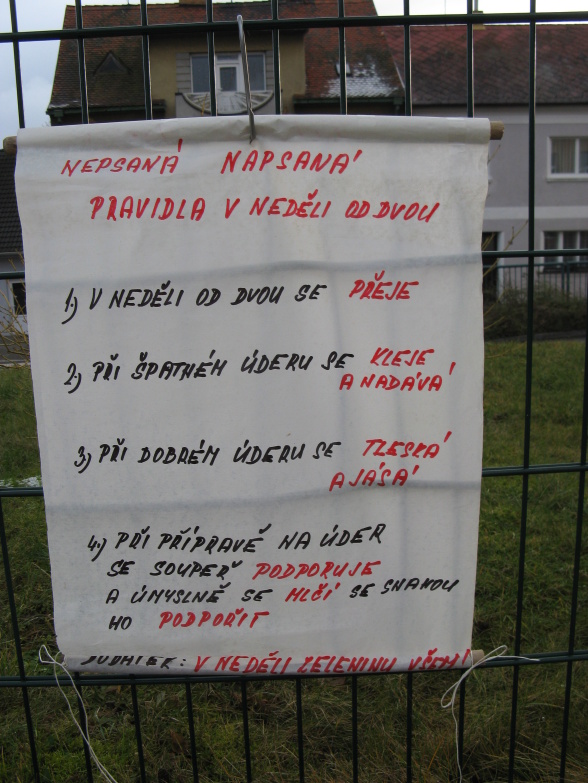 NEPSANÁ NAPSANÁ
PRAVIDLA V NEDĚLI OD DVOU
1.) V NEDĚLI OD DVOU SE PŘEJE
2.) PŘI ŠPATNÉM ÚDERU SE KLEJE
A NADÁVÁ
3.) PŘI DOBRÉM ÚDERU SE TLESKÁ
A JÁSÁ
4.) PŘI PŘÍPRAVĚ NA ÚDER
SE SOUPEŘ PODPORUJE
A ÚMYSLNĚ SE MLČÍ SE SNAHOU
HO PODPOŘIT
DODATEK: V NEDĚLI ZELENINU VŠEM!